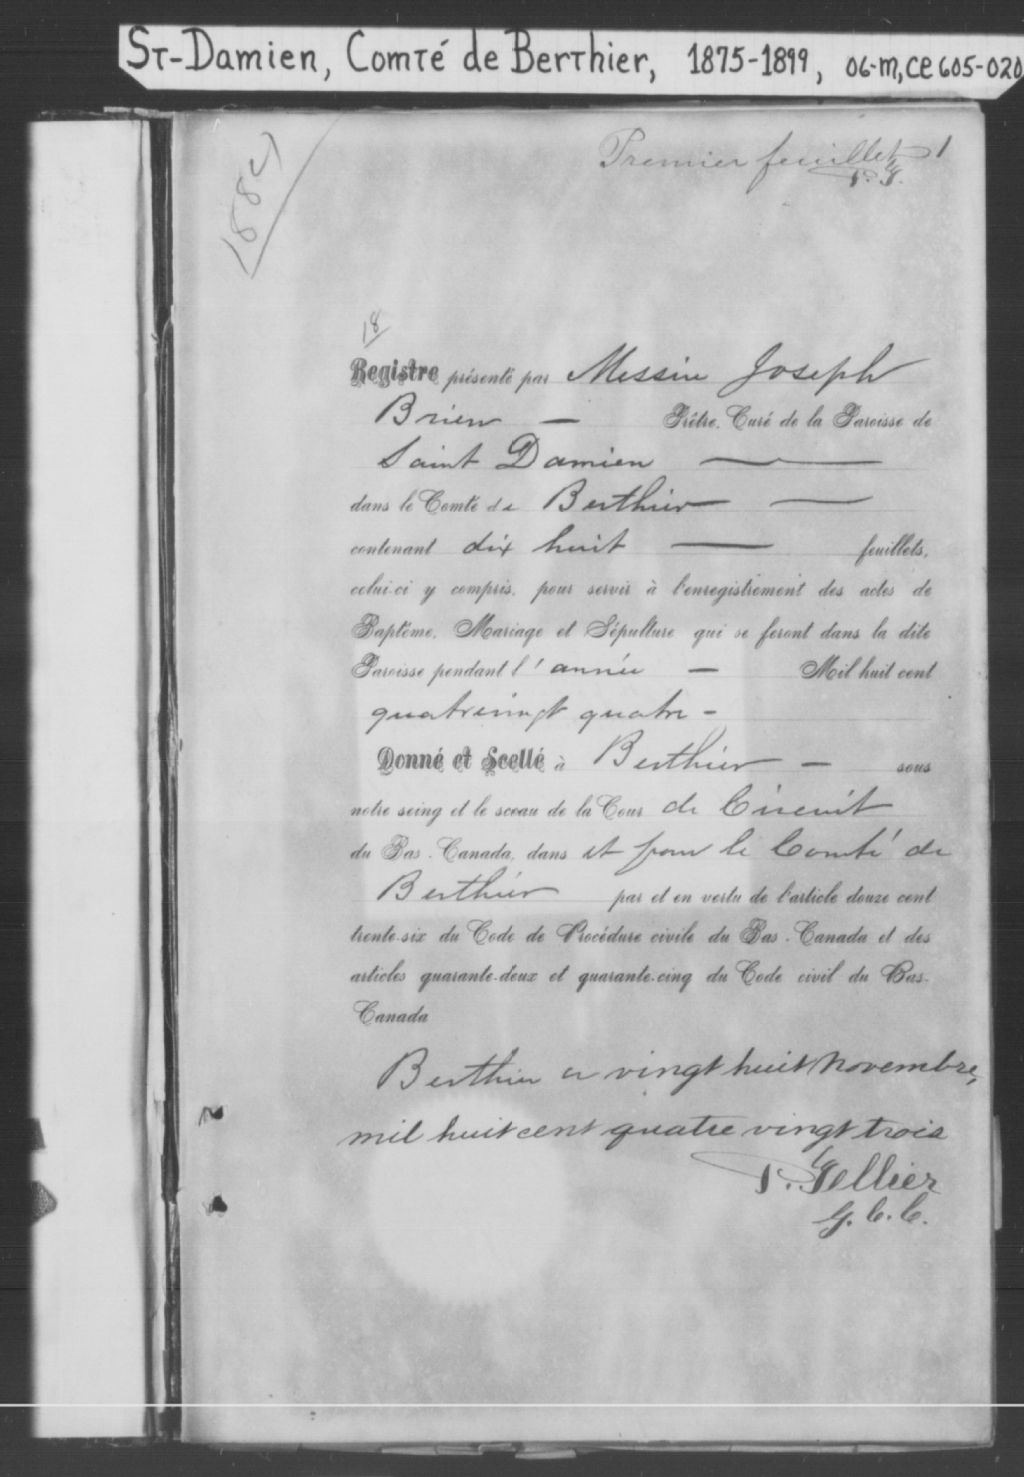 St-Damien, Comté de Berthier, 1875-1899, 06-M, CE605-020
1884
Premier feuillet 1
P. T.
18
Registre présenté par Messire Joseph
Brien — Prêtre, Curé de la Paroisse de
Saint Damien —
dans le Comté de Berthier —
contenant dix huit — feuillets,
celui-ci y compris, pour servir à l'enregistrement des actes de
Baptême, Mariage et Sépulture qui se feront dans la dite
Paroisse pendant l'année — Mil huit cent
quatrevingt quatre -
Donné et Scellé à Berthier — sous
notre seing et le sceau de la Cour de Circuit
du Bas-Canada, dans et pour le Comté de
Berthier par et en vertu de l'article douze cent
trente-six du Code de Procédure civile du Bas-Canada et des
articles quarante-deux et quarante-cinq du Code civil du Bas-
Canada
Berthier ce vingt huit Novembre,
mil huit cent quatre vingt trois
P. Tellier
G. C. C.